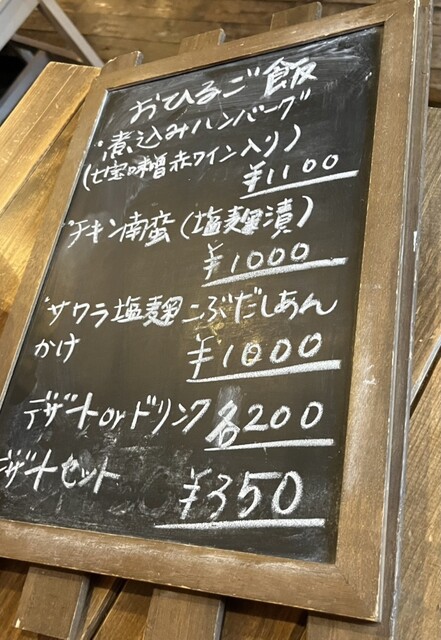 おひるご飯
煮込みハンバーグ
(七宝味噌赤ワイン入り)
¥1100
チキン南蛮(塩麹漬)
¥1000
サワラ塩麹こぶだしあん
かけ ¥1000
デザートorドリンク各200
デザートセット ¥350